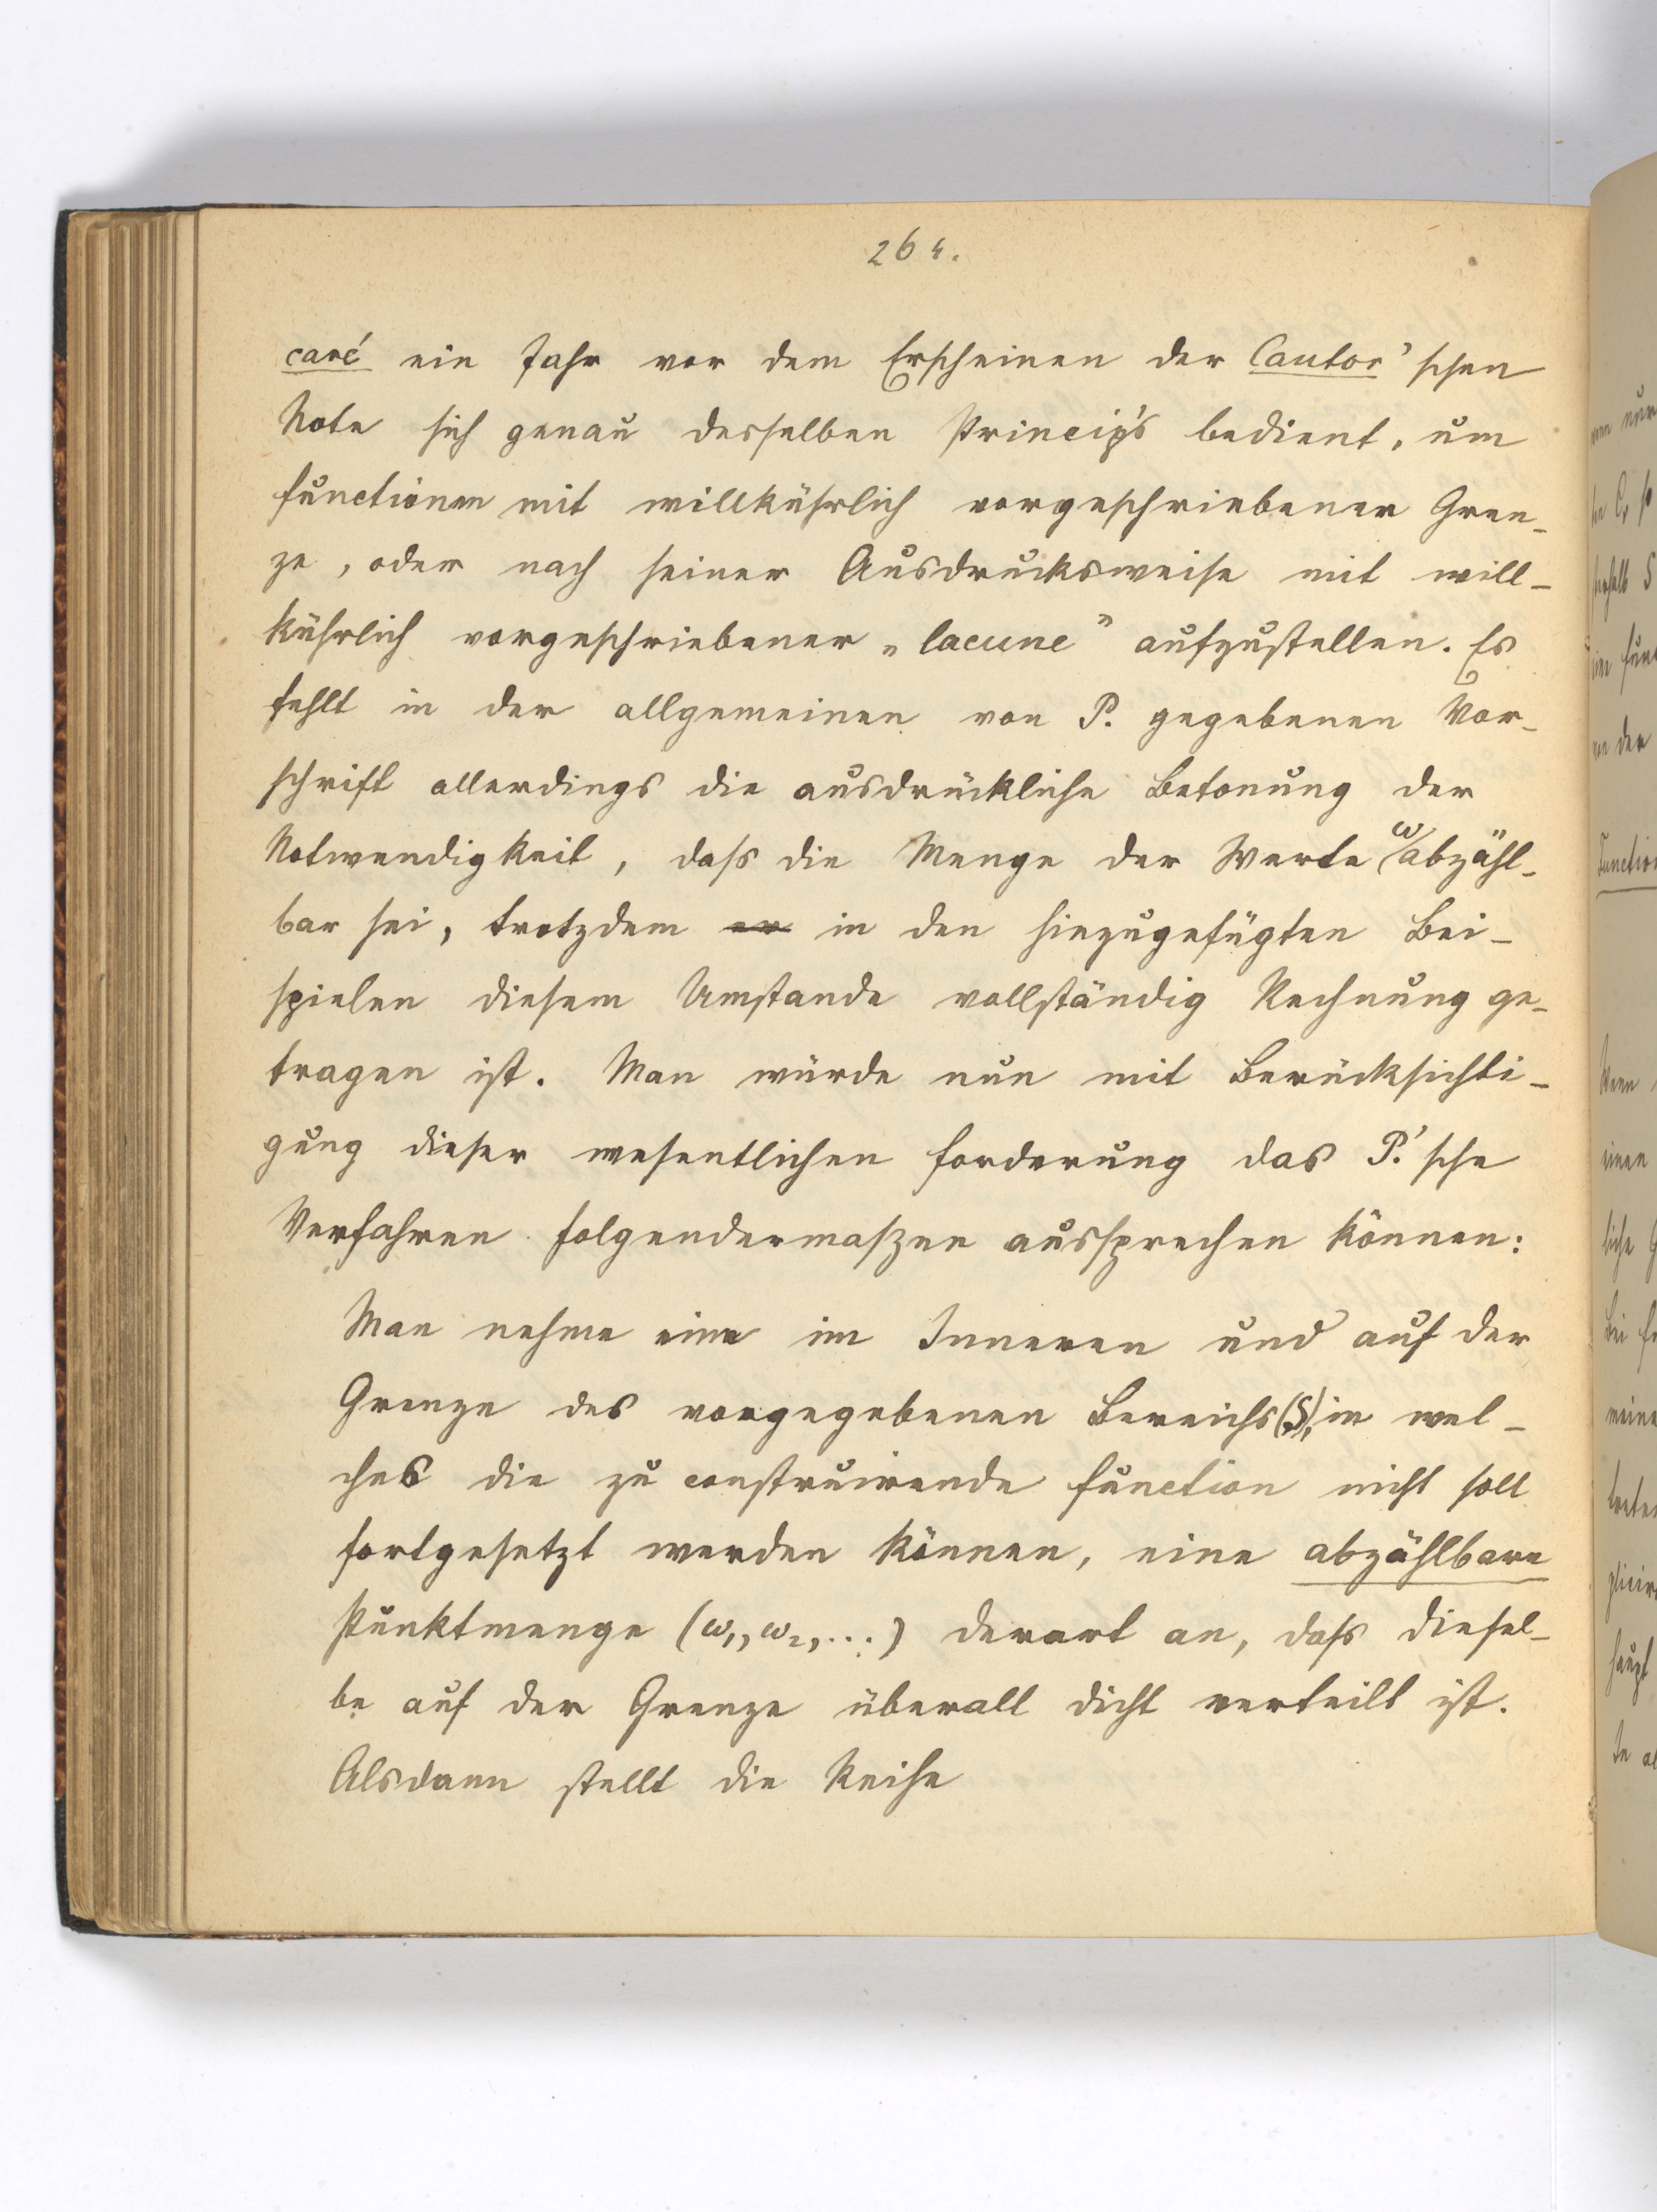 264.
caré ein Jahr vor dem Erscheinen der Cantor'schen
Note sich genau desselben Princip's bedient, um
Functionen mit willkührlich vorgeschriebener Gren-
ze, oder nach seiner Ausdrucksweise mit will-
kührlich vorgeschriebener „lacune" aufzustellen. Es
fehlt in der allgemeinen von P. gegebenen Vor-
schrift allerdings die ausdrückliche Betonung der
Notwendigkeit, dass die Menge der Werte ω abzähl-
bar sei, trotzdem in den hinzugefügten Bei-
spielen diesem Umstande vollständig Rechnung ge-
tragen ist. Man würde nun mit Berücksichti-
gung dieser wesentlichen Forderung das P.'sche
Verfahren folgendermaszen aussprechen können:
Man nehme eine im Inneren und auf der
Grenze des vorgegebenen Bereichs (S), in wel-
ches die zu construirende Function nicht soll
fortgesetzt werden können, eine abzählbare
Punktmenge (ω₁, ω₂, ...) derart an, dass diesel-
be auf der Grenze überall dicht verteilt ist.
Alsdann stellt die Reihe